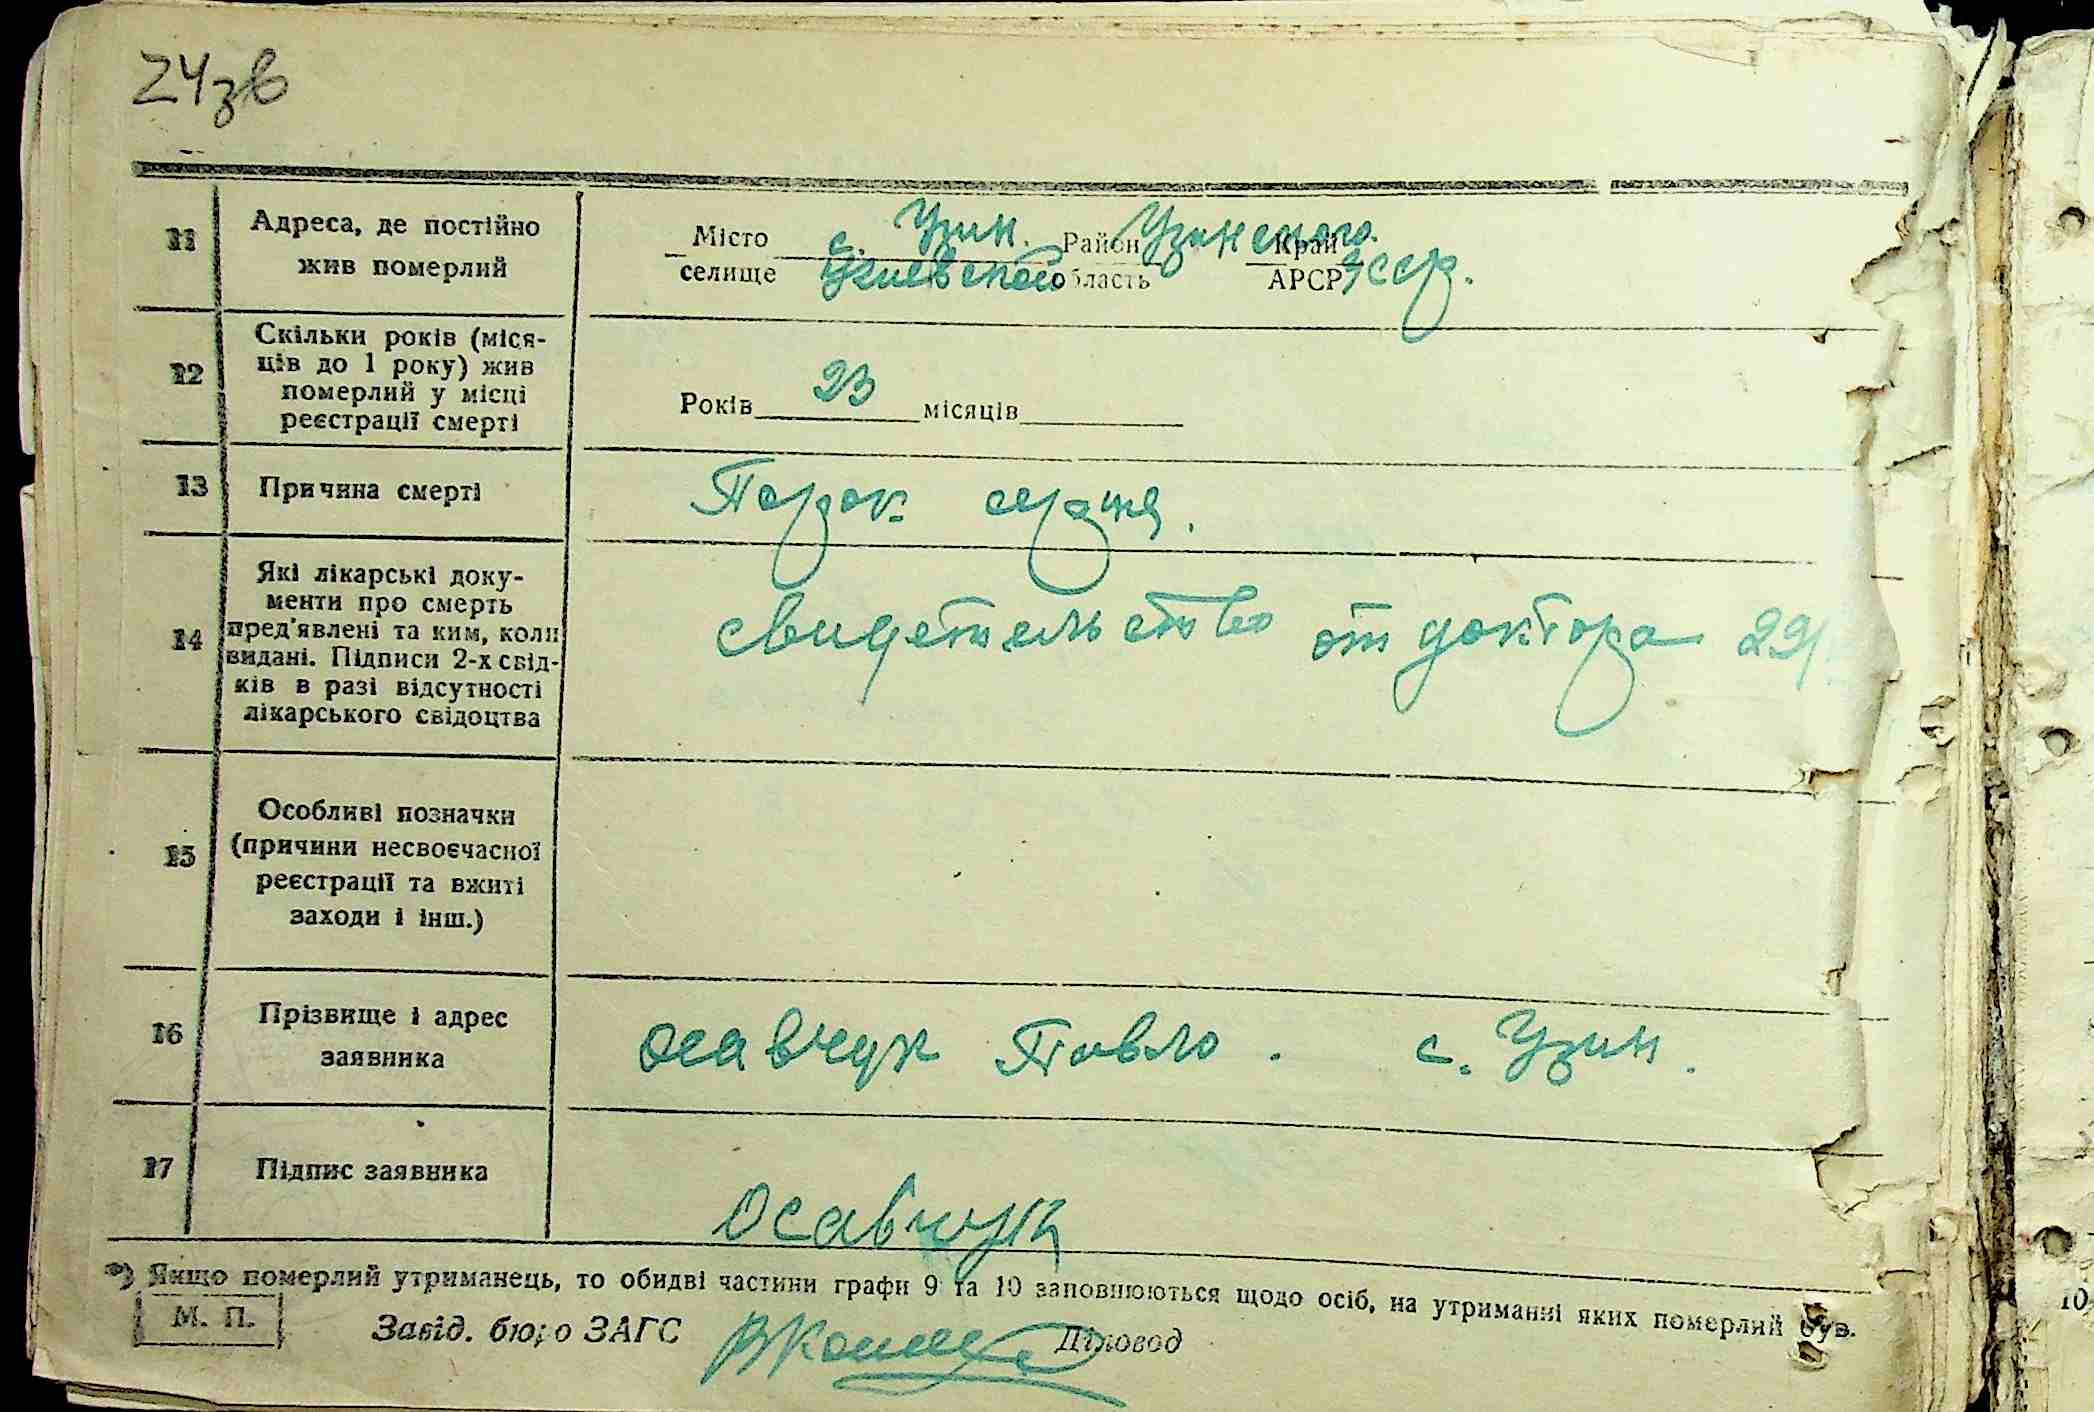 24зв
11 Адреса, де постійно Місто с. Узин. Район Узинского Край
жив померлий селище Киевской область АРСР УССР.
12 Скільки років (міся-
ців до 1 року) жив
померлий у місці Років 23 місяців
реєстрації смерті
13 Причина смерті Порок сердця.
14 Які лікарські доку-
менти про смерть
пред'явлені та ким, коли свидетельство от доктора 29/
видані. Підписи 2-х свід-
ків в разі відсутності
лікарського свідоцтва
15 Особливі позначки
(причини несвоєчасної
реєстрації та вжиті
заходи і інш.)
16 Прізвище і адрес Осавчук Павло. с. Узин.
заявника
17 Підпис заявника Осавчук
*) Якщо померлий утриманець, то обидві частини графи 9 та 10 заповнюються щодо осіб, на утриманні яких померлий був.
М. П. Завід. бюро ЗАГС Діловод
10